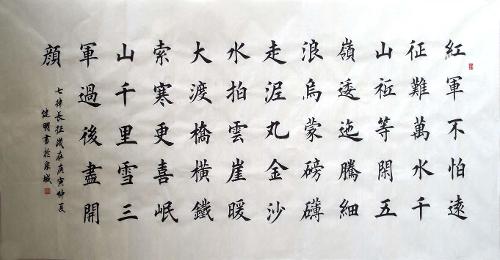 紅軍不怕遠
征難萬水千
山祗等閑五
嶺逶迤騰細
浪烏蒙磅礴
走泥丸金沙
水拍雲崖暖
大渡橋橫鐵
索寒更喜岷
山千里雪三
軍過後盡開
顔
七律長征歲在庚寅仲夏
健明書於泉城